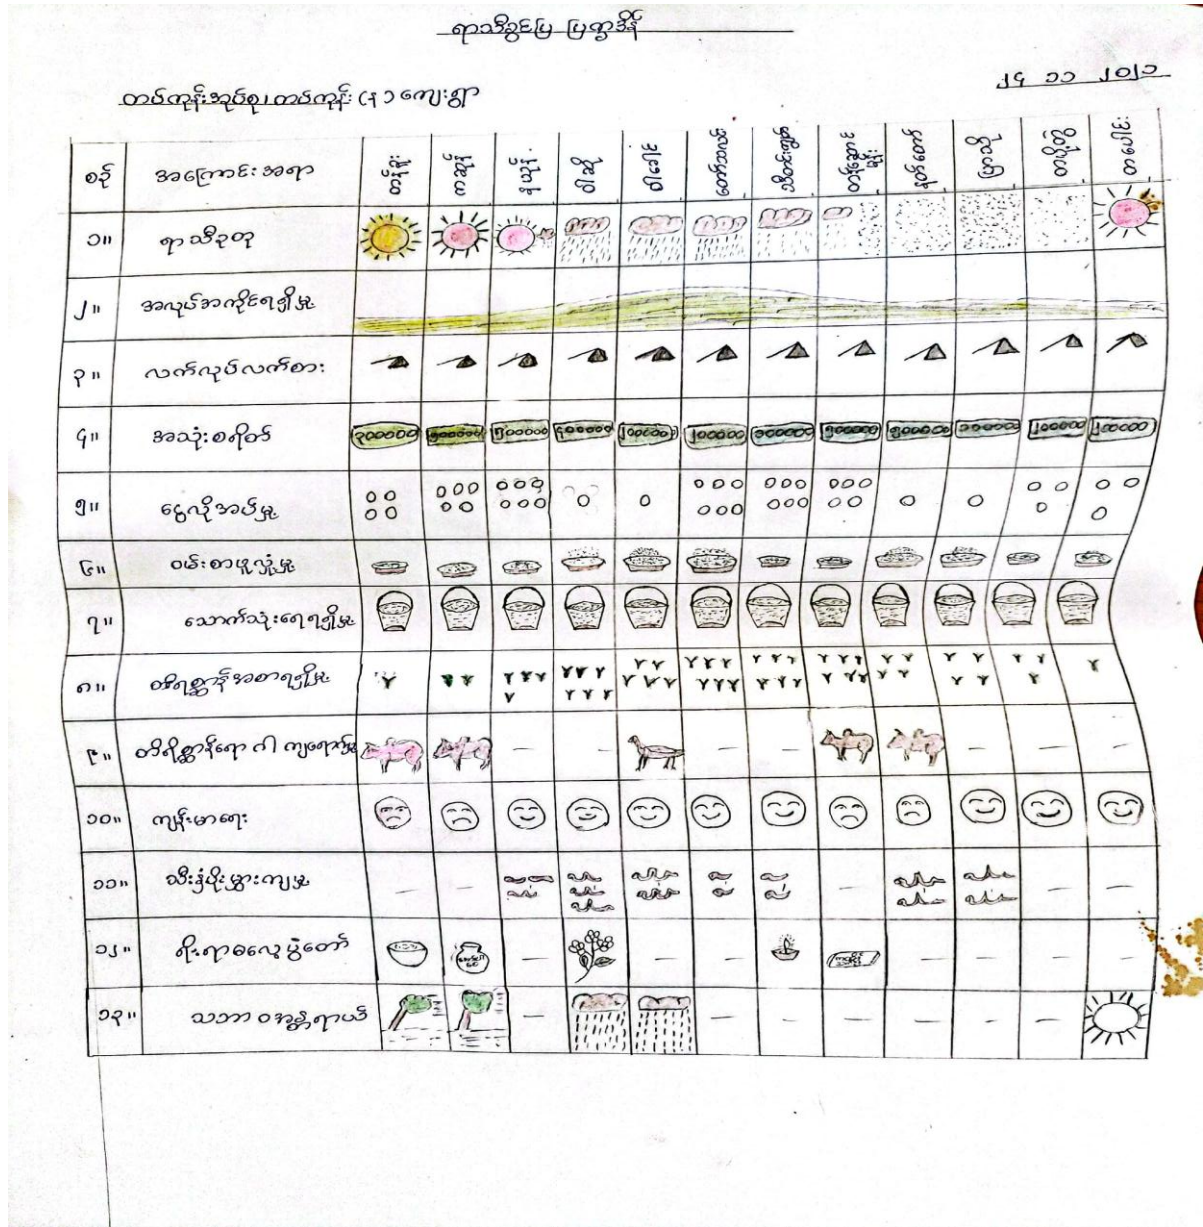 ရာသီခွင်ပြ ပြက္ခဒိန်
၂၄ ၁၁ ၂၀၂၁
တပ်ကုန်းအုပ်စု၊ တပ်ကုန်း (န) ကျေးရွာ
စဉ် အကြောင်းအရာ တန်ခူး ကဆုန် နယုန် ဝါဆို ဝါခေါင် တော်သလင်း သီတင်းကျွတ် တန်ဆောင်မုန်း နတ်တော် ပြာသို တပို့တွဲ တပေါင်း
၁။ ရာသီဥတု
၂။ အလုပ်အကိုင်ရရှိမှု
၃။ လက်လုပ်လက်စား
၄။ အသုံးစရိတ် ၃၀၀၀၀၀ ၅၀၀၀၀၀ ၄၀၀၀၀၀ ၂၀၀၀၀၀ ၂၀၀၀၀၀ ၁၀၀၀၀၀ ၁၀၀၀၀၀ ၂၀၀၀၀၀ ၂၀၀၀၀၀
၅။ ငွေလိုအပ်မှု
၆။ ဝမ်းစာဖူလုံမှု
၇။ သောက်သုံးရေရရှိမှု
၈။ တိရစ္ဆာန်အစာရရှိမှု
၉။ တိရိစ္ဆာန်ရောဂါ ကျရောက်မှု
၁၀။ ကျန်းမာရေး
၁၁။ သီးနှံပိုးမွှားကျမှု
၁၂။ ရိုးရာဓလေ့ပွဲတော်
၁၃။ သဘာဝအန္တရာယ်